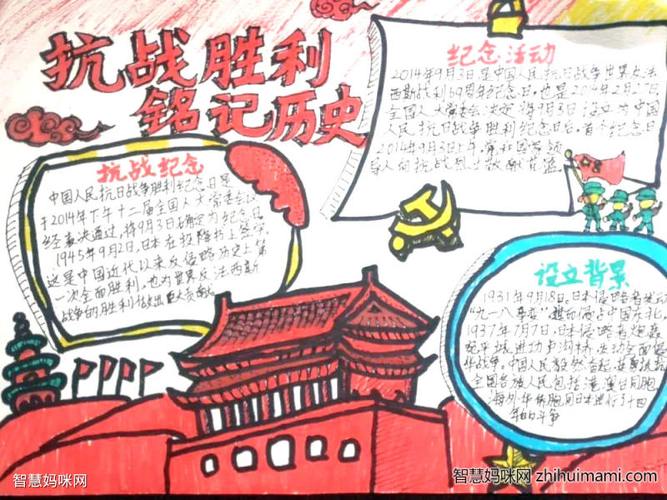 抗战胜利
铭记历史
纪念活动
2014年9月3日是中国人民抗日战争暨世界反法
西斯战利69周年纪念日。也是2014年2月27日
全国人大常委会决定将9月3日设立为中国
人民抗日战争胜利纪念日后,首个纪念日
2014年9月3日上午,党和国家领
导人向抗战烈士敬献花篮
抗战纪念
中国人民抗日战争胜利纪念日是
于2014年下午十二届全国人大常委会
经表决通过,将9月3日确定为纪念日
1945年9月2日,日本在投降书上签字
这是中国近代以来反侵略历史上第
一次全面胜利,也为世界反法西斯
战争的胜利做出巨大贡献
设立背景
1931年9月18日,日本侵略者发动
"九一八事变",占中国东北。
1937年7月7日,日本侵略者炮轰
宛平城进攻卢沟桥,发动全面侵
华战争。中国人民毅然奋起,
全国各族人民包括港澳台同胞
海外华侨胞同日本进行了十四
年的斗争
智慧妈咪网
智慧妈咪网 zhihuimami.com